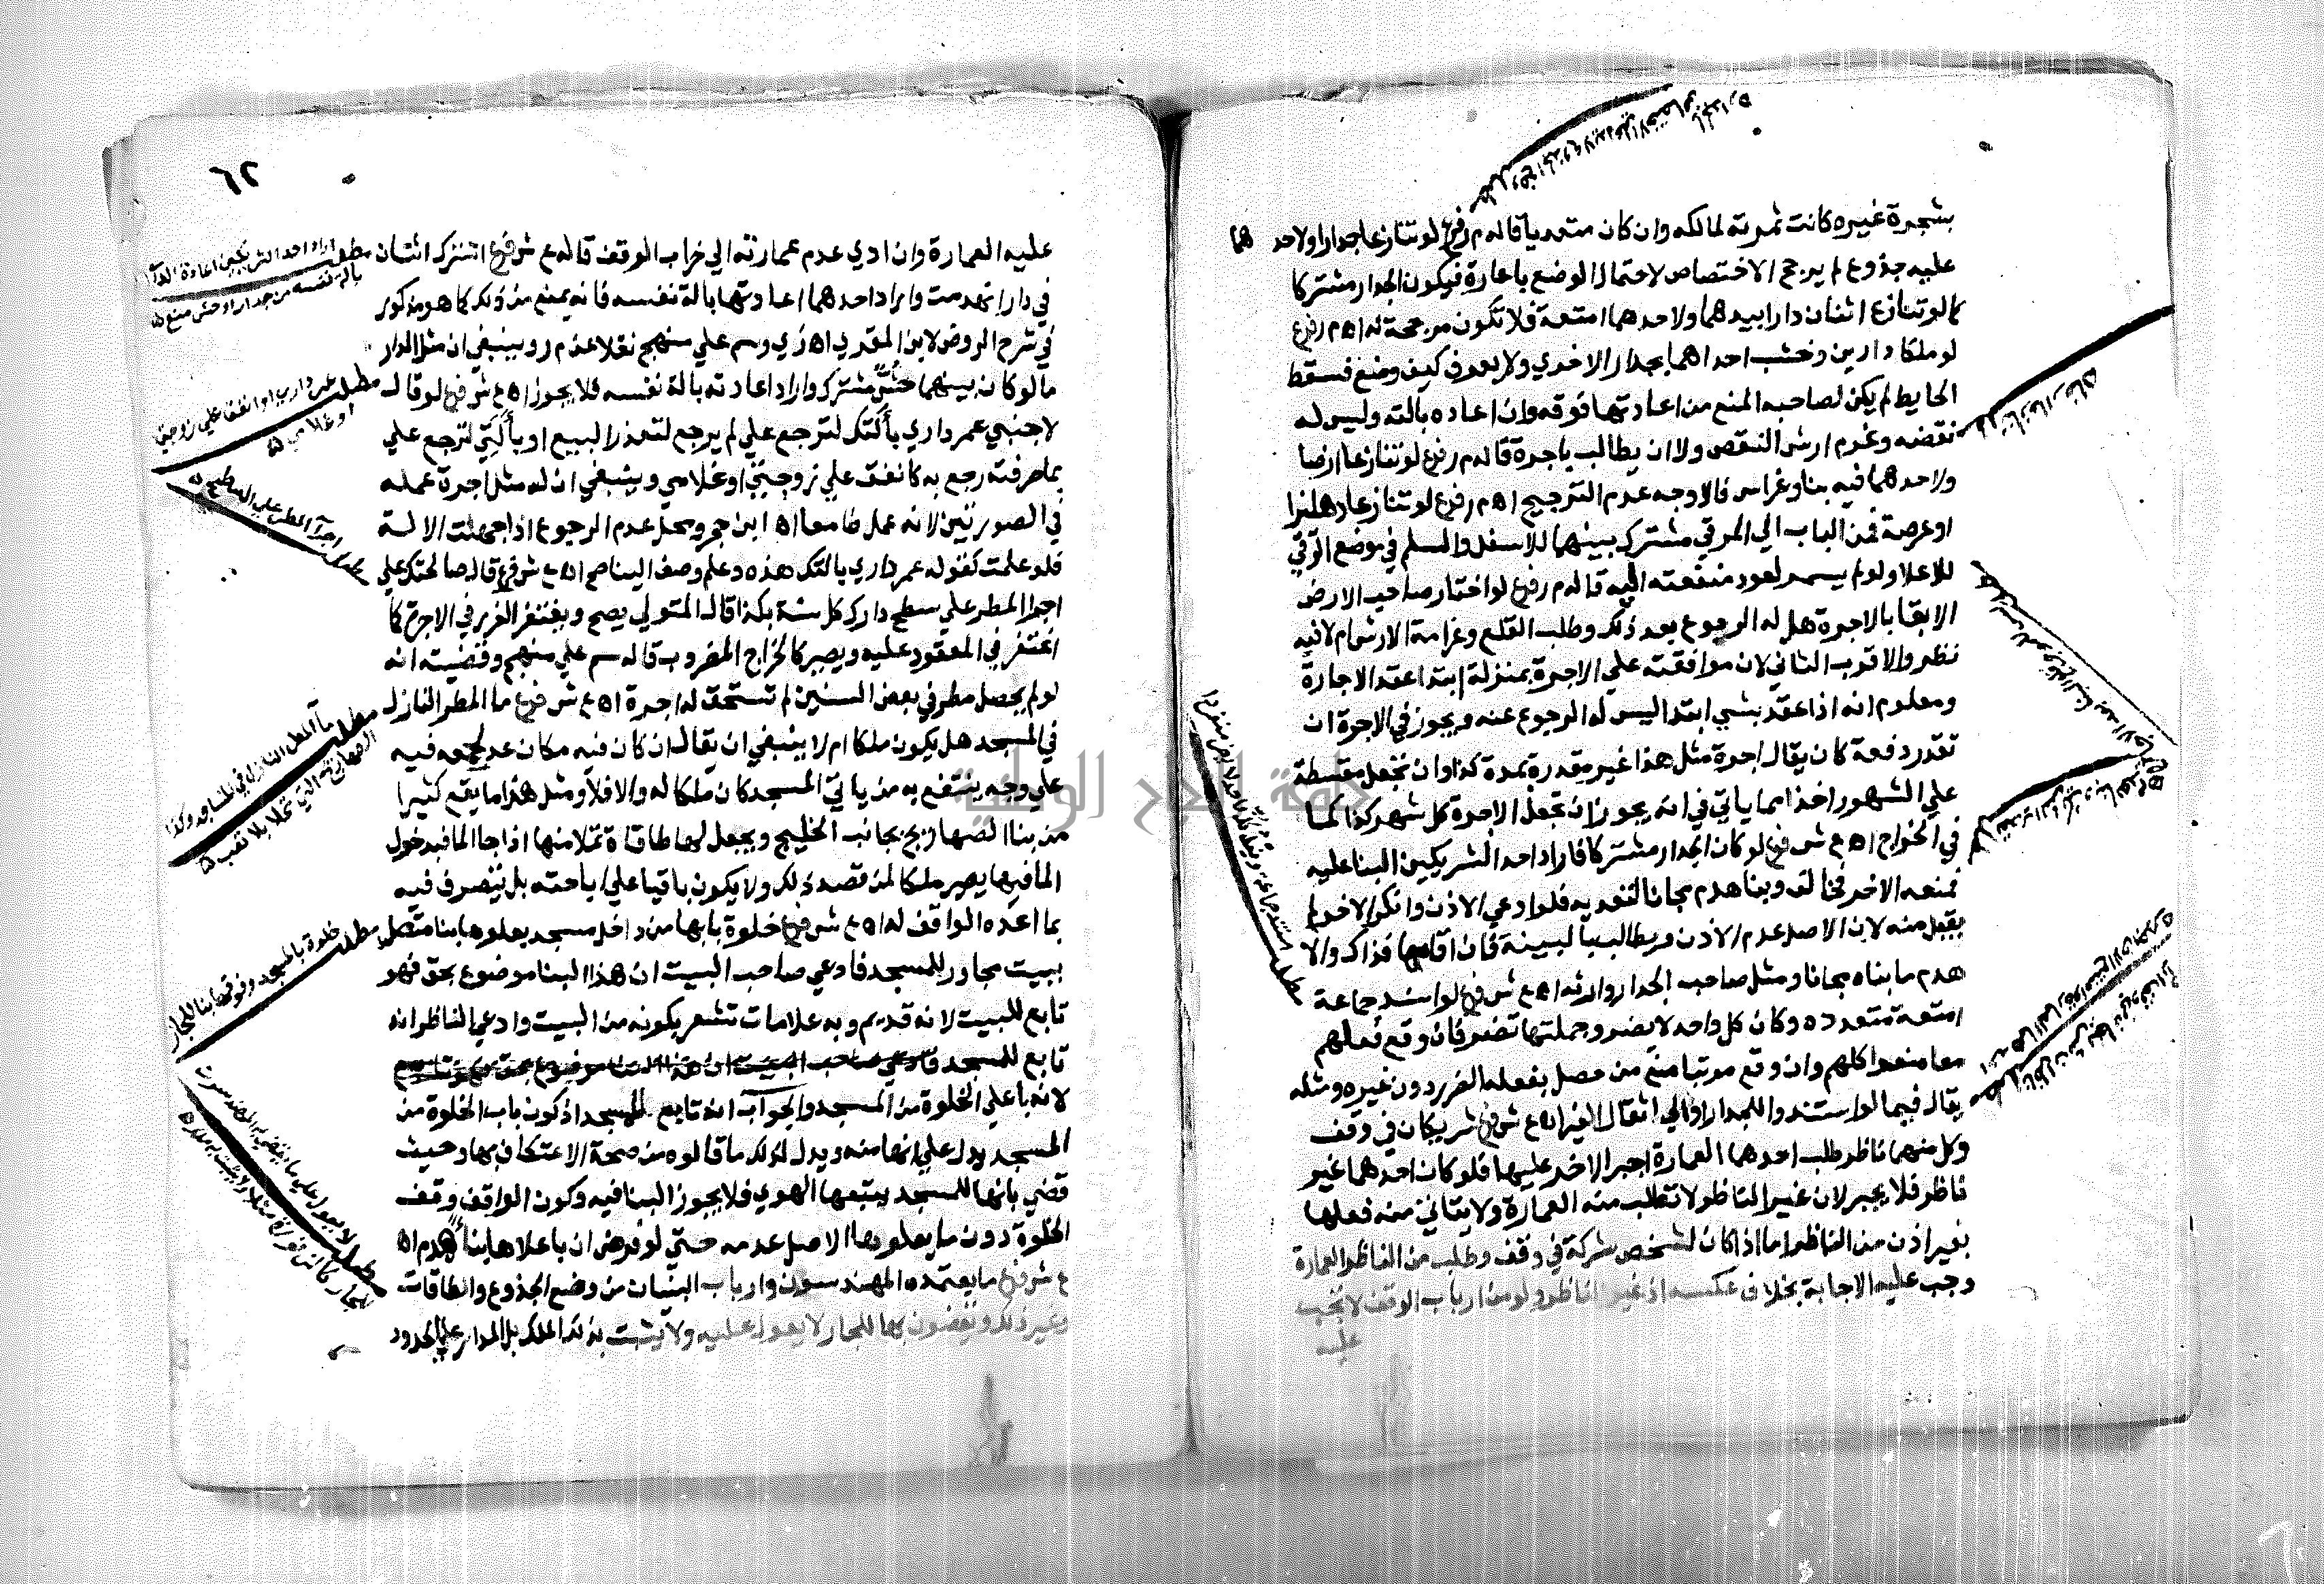 بشجرة غيره كانت ثمرته لمالكه وان كان متعديا قاله م ر فرع لو تنازعا جدارا ولاحدهما
عليه جذوع لم يرجح الاختصاص لاحتمال الوضع باعارة فيكون الجدار مشتركا
كما لو تنازع اثنان دارا بيدهما ولاحدهما امتعة فلا تكون مرجحة له اه م ر فرع
لو ملكا دارين وخشب احداهما بجدار الاخري ولا يعرف كيف وضع فسقط
الحايط لم يكن لصاحبه المنع من اعادتها فوقه وان اعاده بالته وليس له
نقضه وغرم ارش النقص ولا ان يطالب باجرة قاله م ر فرع لو تنازعا ارضا
ولاحدهما فيه بنا وغراس فالاوجه عدم الترجيح اه م ر فرع لو تنازعا دهليزا
او عرصة فمن الباب الي المرقي مشترك بينهما للاسفل والسلم في موضع الرقي
للاعلا ولو لم يسمر لعود منفعته اليه قاله م ر فرع لو اختار صاحب الارض
الابقا بالاجرة هل له الرجوع بعد ذلك وطلب القلع وغرامة الارش ام لا فيه
نظر والاقرب الثاني لان موافقته علي الاجرة بمنزلة ابتدا عقد الاجارة
ومعلوم انه اذا عقد بشي ابتدا ليس له الرجوع عنه ويجوز في الاجرة ان
تقدر دفعة كان يقال اجرة مثل هذا غير مقدرة بمدة كذا وان تجعل مقسطة
علي الشهور اخذا مما ياتي في انه يجوز ان تجعل الاجرة كل شهر كذا كما
في الخراج اه ع ش فرع لو كان الجدار مشتركا فاراد احد الشريكين البنا عليه
فمنعه الاخر فخالف وبنا هدم مجانا لتعديه فلو ادعي الاذن وانكر الاخر لم
يقبل منه لان الاصل عدم الاذن ويطالب بالبينة فان اقامها فذاك والا
هدم ما بناه مجانا ومثل صاحب الجدار وارثه اه ع ش فرع لو اسند جماعة
امتعة متعددة وكان كل واحد لا يضر وجملتها تضر فان وقع فعلهم
معا منعوا كلهم وان وقع مرتبا منع من حصل بفعله الضرر دون غيره ومثله
يقال فيما لو استندوا للجدار او الي اثقال الغير اه ع ش فرع شريكان في وقف
وكل منهما ناظر طلب احدهما العمارة اجبر الاخر عليها فلو كان احدهما غير
ناظر فلا يجبر لان غير الناظر لا تطلب منه العمارة ولا يتاتي منه فعلها
بغير اذن من الناظر اما اذا كان لشخص شركة في وقف وطلب من الناظر العمارة
وجب عليه الاجابة بخلاف عكسه اذ غير الناظر ولو من ارباب الوقف لا تجب
عليه
٦٢
عليه العمارة وان ادي عدم عمارته الي خراب الوقف قاله ع ش فرع اشترك اثنان
في دار انهدمت واراد احدهما اعادتها بالة نفسه فانه يمنع من ذلك كما هو مذكور
في شرح الروض لابن المقري اه زي وسم علي منهج نقلا عن م ر وينبغي ان مثل الدار
ما لو كان بينهما حش مشترك واراد اعادته بالة نفسه فلا يجوز اه ع ش فرع لو قال
لاجنبي عمر داري بالتك لترجع علي لم يرجع لتعذر البيع او بالتي لترجع علي
بما صرفته رجع به كانفق علي زوجتي او غلامي وينبغي ان له مثل اجرة عمله
في الصورتين لانه عمل طامعا اه ابن حجر ومحل عدم الرجوع اذا جهلت الالة
فلو علمت كقوله عمر داري بالتك هذه وعلم وصف البنا صح اه ع ش فرع قال صالحتك علي
اجرا المطر علي سطح دارك كل سنة بكذا قال المتولي يصح ويغتفر الغرر في الاجرة كما
اغتفر في المعقود عليه ويصير كالخراج المضروب قاله سم علي منهج وقضيته انه
لو لم يحصل مطر في بعض السنين لم تستحق له اجرة اه ع ش فرع ما المطر النازل
في المسجد هل يكون ملكا ام لا ينبغي ان يقال ان كان فيه مكان عد لجمعه فيه
علي وجه ينتفع به من ياتي المسجد كان ملكا له والا فلا ومثل هذا ما يقع كثيرا
من بنا الصهاريج بجانب الخليج ويجعل لها طاقة تملا منها اذا جا الما فبدخول
الما فيها يصير ملكا لمن قصد ذلك ولا يكون باقيا علي اباحته بل يتصرف فيه
بما اعده الواقف له اه ع ش فرع خلوة بابها من داخل مسجد يعلوها بنا متصل
ببيت مجاور للمسجد فادعي صاحب البيت ان هذا البنا موضوع بحق فهو
تابع للبيت لانه قديم وبه علامات تشعر بكونه من البيت وادعي الناظر انه
تابع للمسجد فادعي صاحب البيت ان هذا البنا موضوع بحق فهو تابع
لانه باعلي الخلوة من المسجد والجواب انه تابع للمسجد اذ كون باب الخلوة من
المسجد يدل علي انها منه ويدل لذلك ما قالوه من صحة الاعتكاف بها وحيث
قضي بانها للمسجد يتبعها الهوي فلا يجوز البنا فيه وكون الواقف وقف
الخلوة دون ما يعلوها الاصل عدمه حتي لو فرض ان باعلاها بنا هدم اه
ع ش فرع ما يعتمده المهندسون وارباب البنيان من وضع الجذوع والطاقات
وغير ذلك ويقضون بها للجار لا يعول عليه ولا يثبت بذلك الملك بل المدار علي الحدود
مطلب اراد احد الشريكين اعادة الدار
بالة نفسه من جدار او حش منع
مطلب عمر داري او انفق علي زوجتي
او غلامي
مطلب اجرا المطر علي السطح
مطلب ما المطر النازل في المساجد وكذا
الصهاريج التي تملا بلا تعب
مطلب خلوة بالمسجد وفوقها بنا للجار